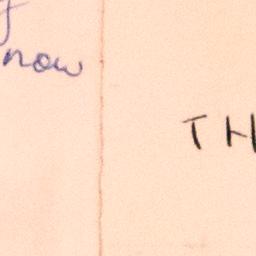 now
TH